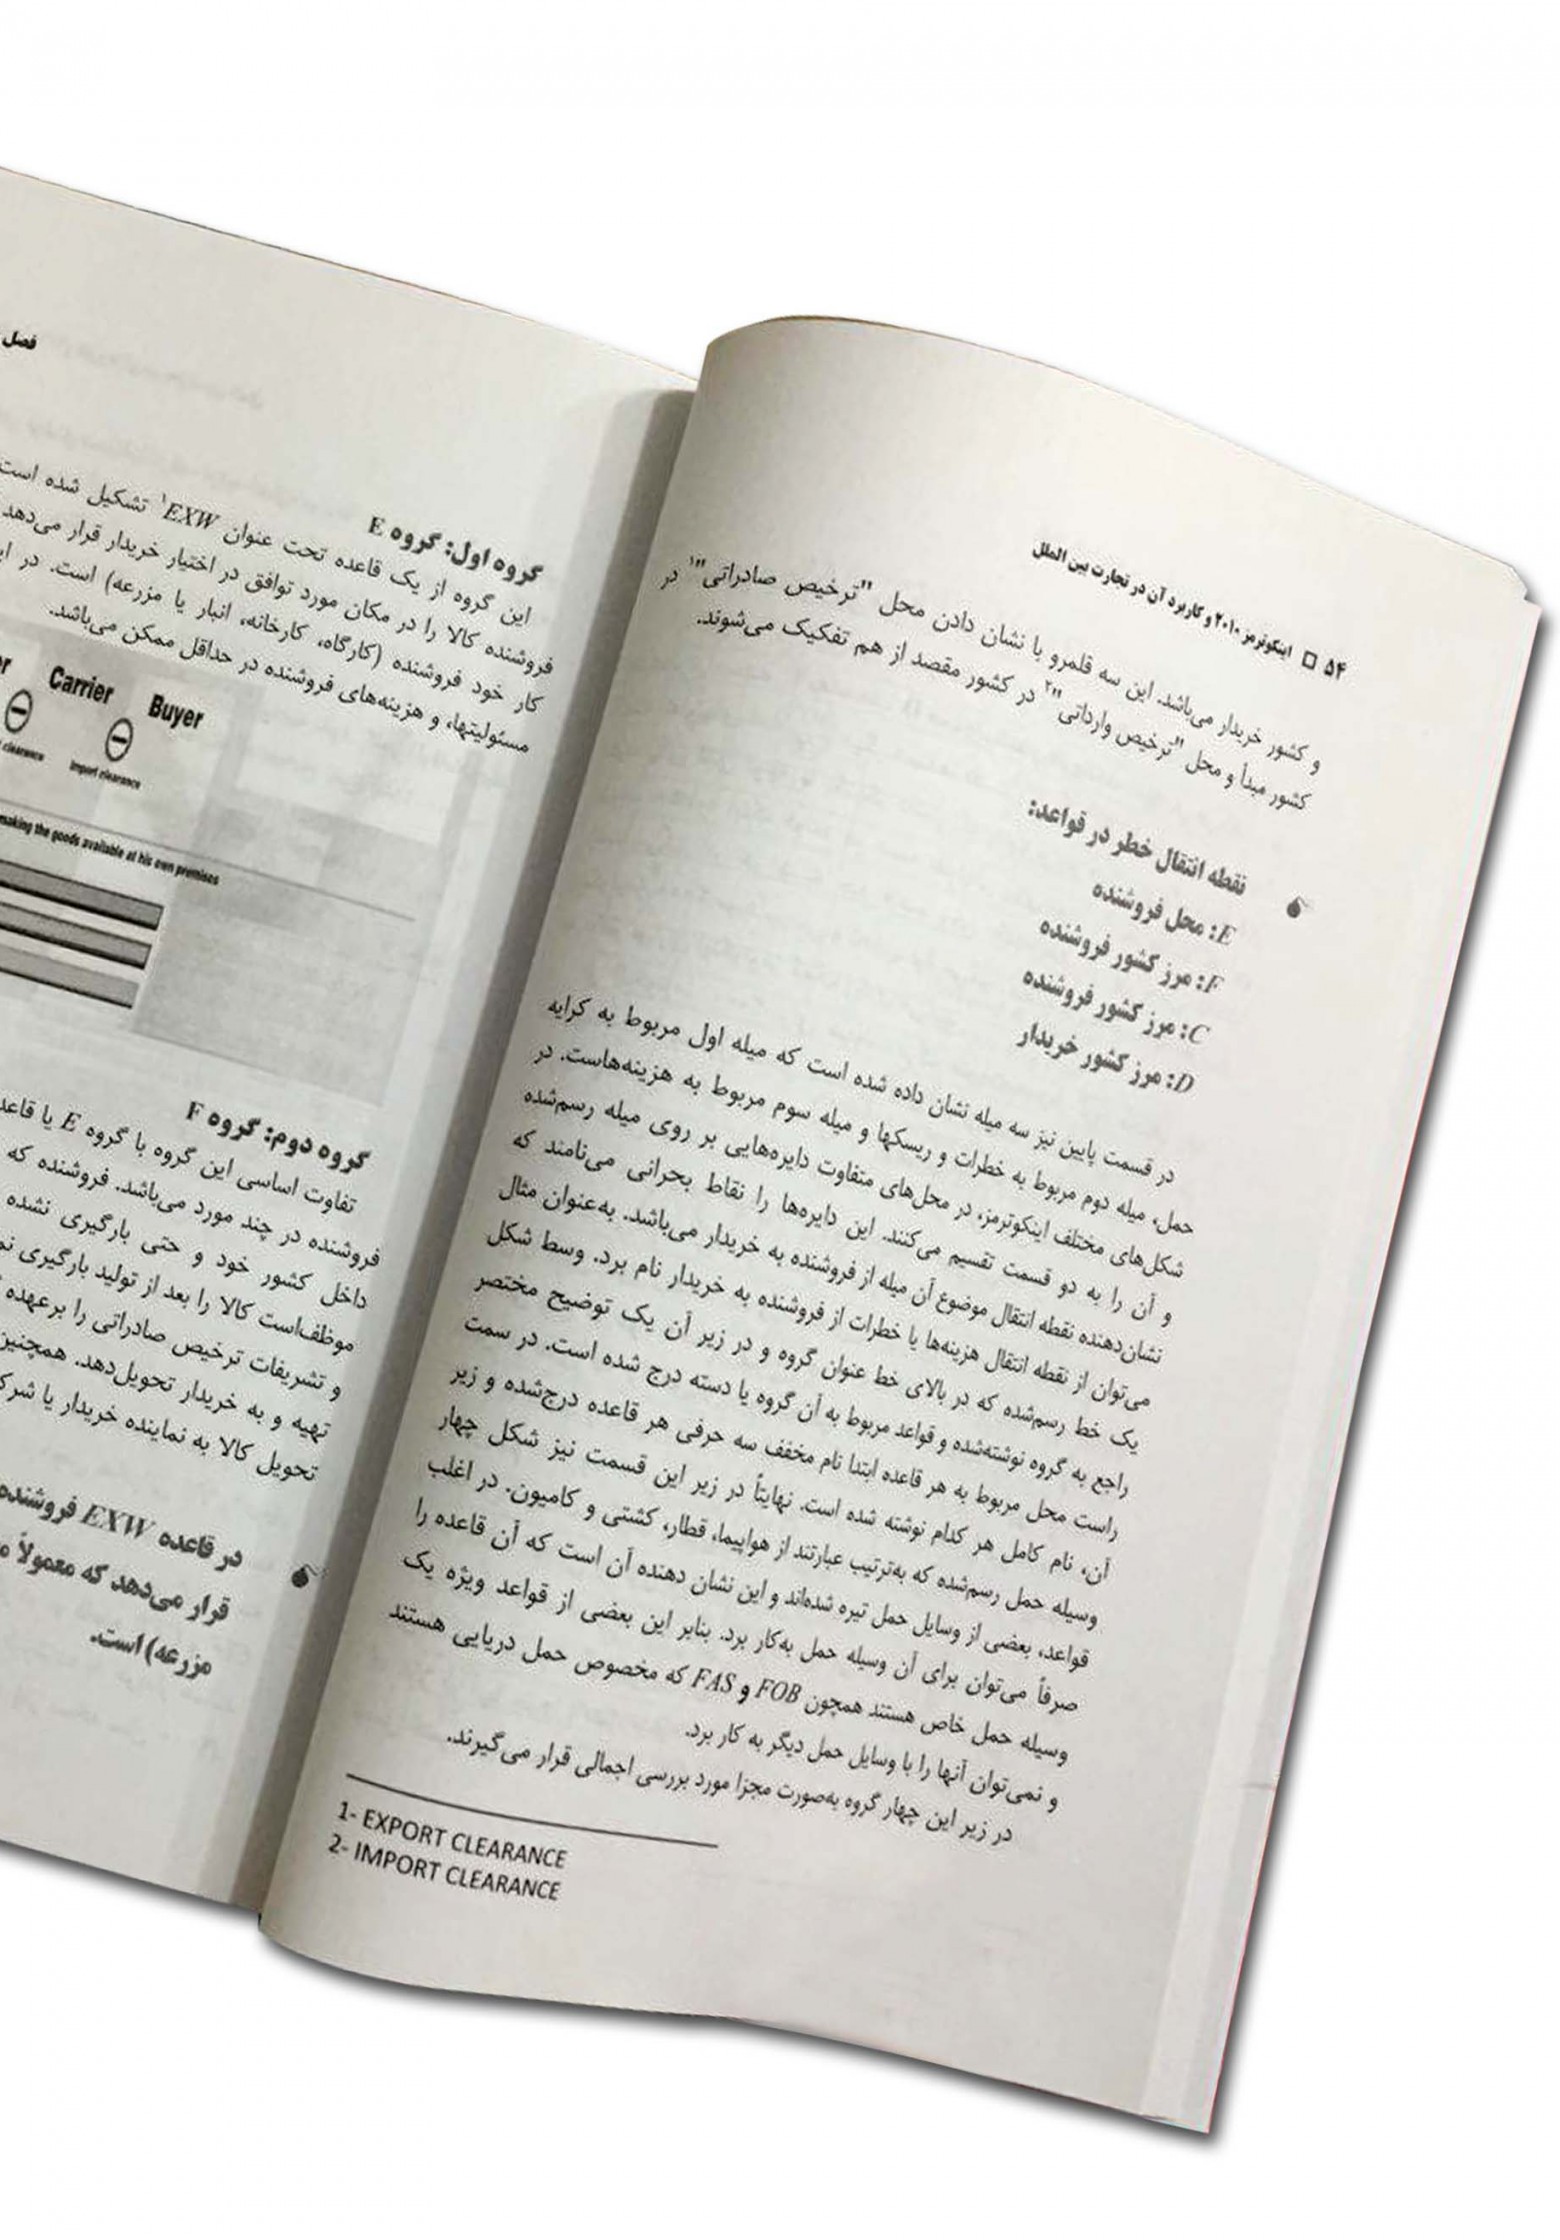 ۵۴ □ اینکوترمز ۲۰۱۰ و کاربرد آن در تجارت بین الملل
و کشور خریدار می‌باشد. این سه قلمرو با نشان دادن محل "ترخیص صادراتی"۱ در
کشور مبدأ و محل "ترخیص وارداتی"۲ در کشور مقصد از هم تفکیک می‌شوند.
نقطه انتقال خطر در قواعد:
E: محل فروشنده
F: مرز کشور فروشنده
C: مرز کشور فروشنده
D: مرز کشور خریدار
در قسمت پایین نیز سه میله نشان داده شده است که میله اول مربوط به کرایه
حمل، میله دوم مربوط به خطرات و ریسکها و میله سوم مربوط به هزینه‌هاست. در
شکل‌های مختلف اینکوترمز، در محل‌های متفاوت دایره‌هایی بر روی میله رسم‌شده
و آن را به دو قسمت تقسیم می‌کنند. این دایره‌ها را نقاط بحرانی می‌نامند که
نشان‌دهنده نقطه انتقال موضوع آن میله از فروشنده به خریدار می‌باشد. به‌عنوان مثال
می‌توان از نقطه انتقال هزینه‌ها یا خطرات از فروشنده به خریدار نام برد. وسط شکل
یک خط رسم‌شده که در بالای خط عنوان گروه و در زیر آن یک توضیح مختصر
راجع به گروه نوشته‌شده و قواعد مربوط به آن گروه یا دسته درج شده است. در سمت
راست محل مربوط به هر قاعده ابتدا نام مخفف سه حرفی هر قاعده درج‌شده و زیر
آن، نام کامل هر کدام نوشته شده است. نهایتاً در زیر این قسمت نیز شکل چهار
وسیله حمل رسم‌شده که به‌ترتیب عبارتند از هواپیما، قطار، کشتی و کامیون. در اغلب
قواعد، بعضی از وسایل حمل تیره شده‌اند و این نشان دهنده آن است که آن قاعده را
صرفاً می‌توان برای آن وسیله حمل به‌کار برد. بنابر این بعضی از قواعد ویژه یک
وسیله حمل خاص هستند همچون FOB و FAS که مخصوص حمل دریایی هستند
و نمی‌توان آنها را با وسایل حمل دیگر به کار برد.
در زیر این چهار گروه به‌صورت مجزا مورد بررسی اجمالی قرار می‌گیرند.
1- EXPORT CLEARANCE
2- IMPORT CLEARANCE
فصل
گروه اول: گروه E
این گروه از یک قاعده تحت عنوان EXW۱ تشکیل شده است
فروشنده کالا را در مکان مورد توافق در اختیار خریدار قرار می‌دهد
کار خود فروشنده (کارگاه، کارخانه، انبار یا مزرعه) است. در
مسئولیتها، و هزینه‌های فروشنده در حداقل ممکن می‌باشد.
Carrier Buyer
clearance Import clearance
making the goods available at his own premises
گروه دوم: گروه F
تفاوت اساسی این گروه با گروه E یا
فروشنده در چند مورد می‌باشد. فروشنده که
داخل کشور خود و حتی بارگیری نشده
موظف‌است کالا را بعد از تولید بارگیری
و تشریفات ترخیص صادراتی را برعهده
تهیه و به خریدار تحویل‌دهد. همچنین
تحویل کالا به نماینده خریدار یا
در قاعده EXW فروشنده
قرار می‌دهد که معمولاً
مزرعه) است.